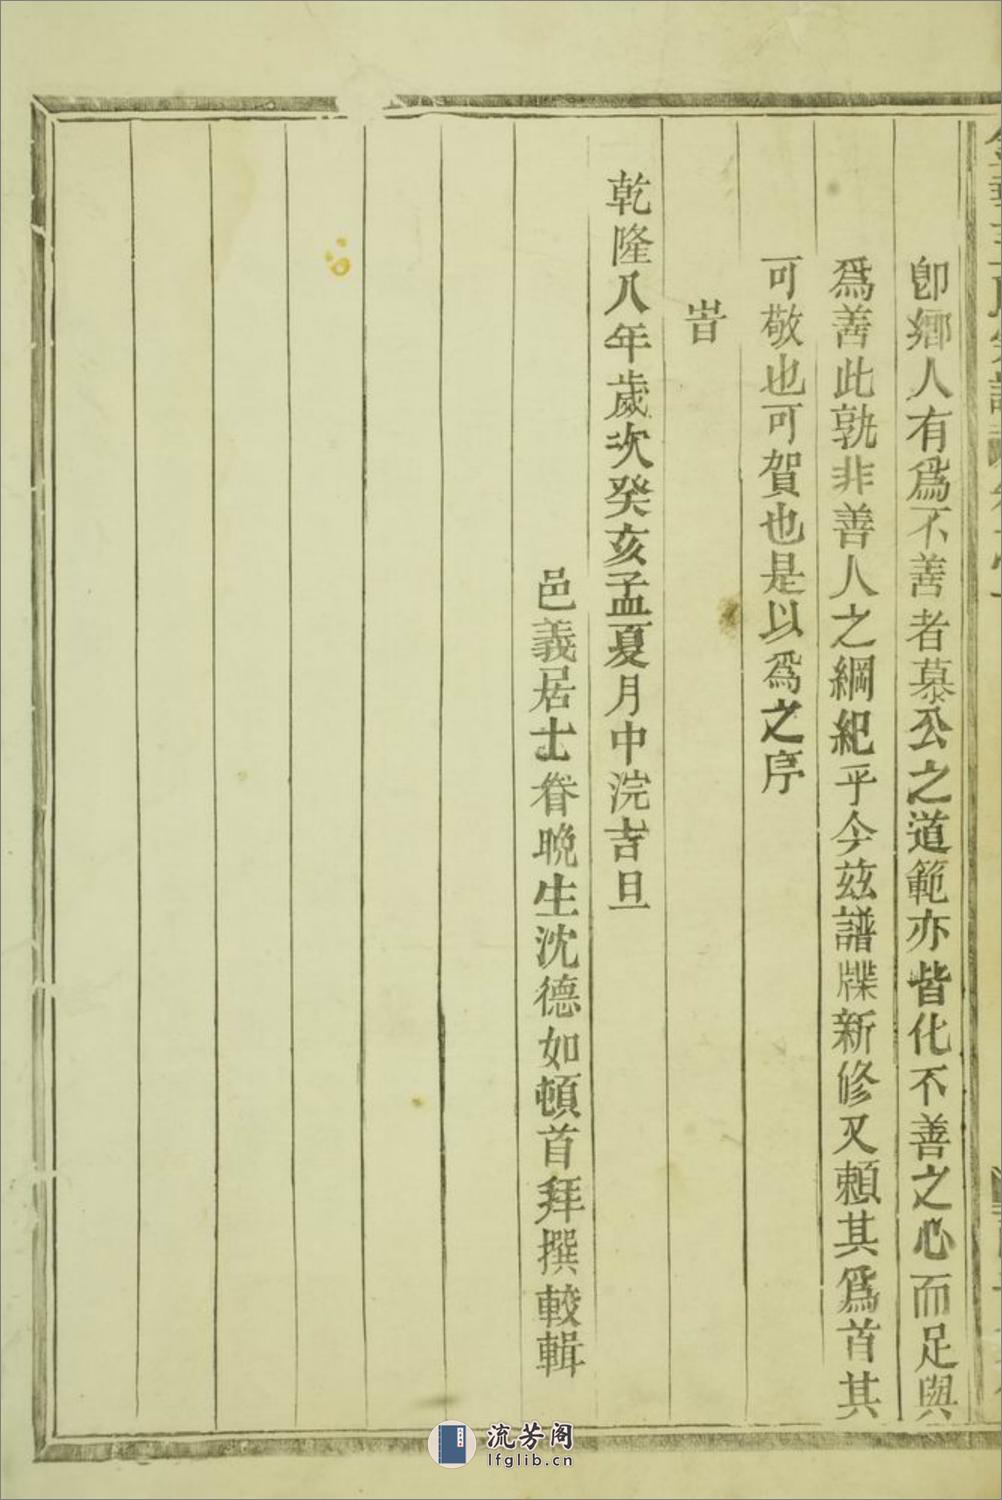 卽鄉人有爲不善者慕公之道範亦皆化不善之心而足與
爲善此孰非善人之綱紀乎今玆譜牒新修又賴其爲首其
可敬也可賀也是以爲之序
旹
乾隆八年歲次癸亥孟夏月中浣吉旦
邑義居士眷晚生沈德如頓首拜撰較輯
流芳阁
lfglib.cn